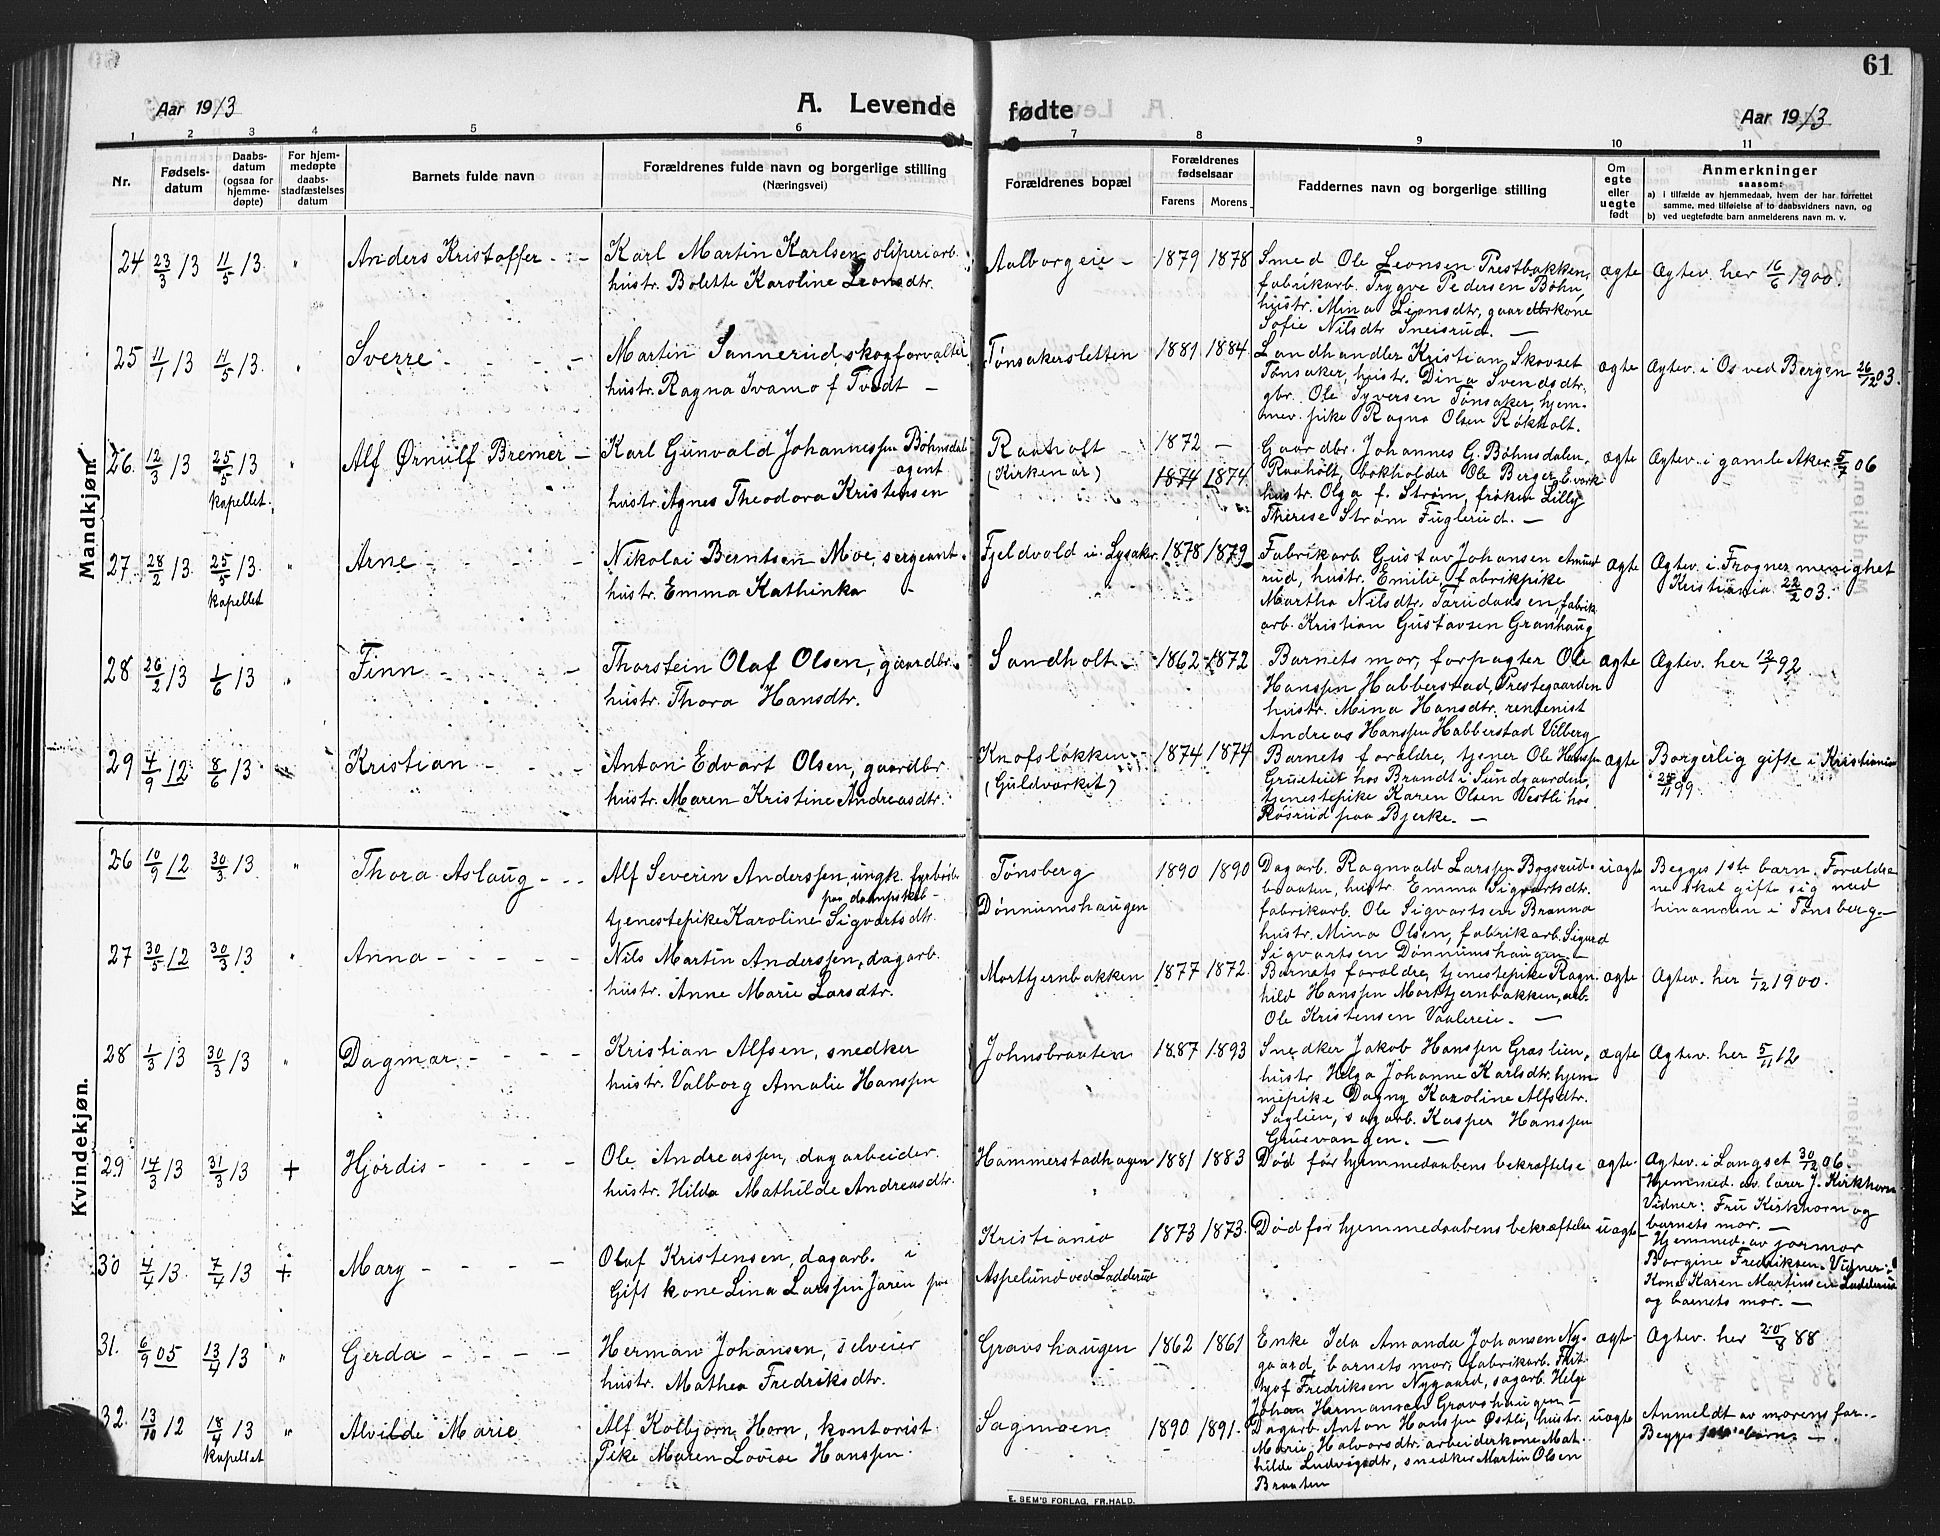 61
Aar 1913
A. Levende fødte
Aar 1913
1 2 3 4 5 6 7 8 9 10 11
Nr.
Fødsels-
datum
Daabs-
datum
(ogsaa for
hjemme-
døpte)
For hjem-
medøpte
daabs-
stadfæstelses
datum
Barnets fulde navn
Forældrenes fulde navn og borgerlige stilling
(Næringsvei)
Forældrenes bopæl
Forældrenes
fødselsaar
Farens Morens
Faddernes navn og borgerlige stilling
Om
egte
eller
uegte
født
Anmerkninger
saasom:
a) i tilfælde av hjemmedaab, hvem der har forrettet
samme, med tilføielse af to daabsvidners navn, og
b) ved uegtefødte barn anmelderens navn m. v.
Mandkjøn.
24 23/3 13 11/5 13 " Anders Kristoffer
Karl Martin Karlsen sliperiarb.
hustr. Bolette Karoline Leonsdtr.
Aalborgeie 1879 1878
Smed Ole Leonsen Prestbakken,
fabrikarb. Trygve Pedersen Böhn,
hustr. Mina Leonsdtr, gaardbrkone
Sofie Nilsdtr Sneisrud.
ægte
Ægtev. her 16/6 1900.
25 11/1 13 11/5 13. " Sverre
Martin Sannerud skogforvalter
hustr. Ragna Ivamo f. Tvedt
Tønsakersletten 1881 1884
Landhandler Kristian Skovset
Tønsaker, hustr. Dina Svendsdtr,
gbr. Ole Syversen Tønsaker, hjem-
mev. pike Ragna Olsen Røkholt.
ægte
Ægtev. i Os ved Bergen 26/12 03.
26. 12/3 13 25/5 13 " Alf Ørnulf Bremer
kapellet.
Karl Gunvald Johannessen Bøhnsdal
agent
hustr. Agnes Theodora Kristensen
Raaholt
(Kirkenær)
1872
1874 1874.
Gaardbr. Johannes G. Bøhnsdalen,
Raaholt, bokholder Ole Berger E.verk
hustr. Olga f. Strøm, frøken Lilly
Therese Strøm Fuglerud.
ægte
Ægtev. i gamle Aker 5/7 06
27. 28/2 13. 25/5 13. " Arne
kapellet
Nikolai Berntsen Moe, sergeant
hustr. Emma Kathinka
Fjeldvold i Lysaker. 1878 1879
Fabrikarb. Gustav Johansen Amund
rud, hustr. Emilie, fabrikpike
Martha Nilsdtr. Tærudaasen, fabrik
arb. Kristian Gustavsen Granhaug
ægte
Ægtev. i Frogner menighet
Kristiania 22/2 03.
28 26/2 13 1/6 13 " Finn
Thorstein Olaf Olsen, gaardbr.
hustr. Thora Hansdtr.
Sandholt 1862 1872
Barnets mor, forpagter Ole
Hanssen Habberstad, Prestegaarden
hustr. Mina Hansdtr. rentenist
Andreas Hanssen Habberstad Vilberg
ægte
Ægtev. her 12/7 92
29 4/9 12 8/6 13 Kristian
Anton Edvart Olsen, gaardbr
hustr. Maren Kristine Andreasdtr.
Knofsløkken
(Guldverket)
1874 1874
Barnets forældre, tjener Ole Hanssen
Grueteiet hos Brandt i Sundgaarden,
tjenestepike Karen Olsen Vestli hos
Røsrud paa Bjerke.
ægte
Borgerlig gifte i Kristiania
25/11 99.
Kvindekjøn.
26 10/9 12 30/3 13 " Thora Aslaug
Alf Severin Anderssen, ungk. fyrbøt.
paa dampskib
tjenestepike Karoline Sigvartsdtr.
Tønsberg
Dønnumshaugen
1890 1890
Dagarb. Ragnvald Larssen Bogsrud-
braaten, hustr. Emma Sigvartsdtr.
fabrikarb. Ole Sigvartsen Branna
hustr. Mina Olsen, fabrikarb. Sigurd
Sigvartsen Dønnumshaugen
uægte
Begges 1ste barn. Forældre
ne skal gifte sig med
hinanden i Tønsberg.
27 30/5 12 30/3 13 " Anna
Nils Martin Anderssen, dagarb.
hustr. Anne Marie Larsdtr.
Morttjernbakken 1877 1872.
Barnets forældre, tjenestepike Ragn-
hild Hanssen Morttjernbakken, arb.
Ole Kristensen Vaalereie.
ægte
Ægtev. her 1/12 1900.
28 1/3 13 30/3 13 " Dagmar
Kristian Alfsen, snedker
hustr. Valborg Amalie Hanssen
Johnsbraaten 1887 1893
Snedker Jakob Hanssen Graslien,
hustr Helga Johanne Karlsdtr. hjem-
mepike Dagny Karoline Alfsdtr.
Saglien, sagarb. Kasper Hanssen
Gruevangen.
ægte
Ægtev. her 5/11 12
29 14/3 13 31/3 13 + Hjørdis
Ole Andreassen, dagarbeider.
hustr. Hilda Mathilde Andreasdtr.
Hammerstadhagen 1881 1883
Død før hjemmedaabens bekræftelse
ægte
Ægtev. i Langset 30/12 06.
Hjemmed. av lærer J. Kirkhorn
Vidner: Fru Kirkhorn og
barnets mor.
30 4/4 13. 7/4 13 + Mary
Olaf Kristensen, dagarb. i
Gift kone Lina Larssen Jaren paa
Kristiania
Aspelund ved Ladderud
1873 1873.
Død før hjemmedaabens bekræftelse
uægte
Hjemmed. av jormor
Borgine Fredriksen. Vidner:
Kone Karen Martinsen Ladderud
og barnets mor.
31. 6/9 05 13/4 13 " Gerda
Herman Johansen, selveier
hustr. Mathea Fredriksdtr.
Gravshaugen 1862 1861
Enke Ida Amanda Johansen Ny-
gaard, barnets mor, fabrikarb. Frit-
hjof Fredriksen Nygaard, sagarb. Helge
Johan Hermansen Gravshaugen
ægte
Ægtev. her 20/8 88
32. 13/10 12 18/4 13 " Alvilde Marie
kapellet
Alf Kolbjørn Horn, kontorist
Pike Maren Lovise Hanssen
Sagmoen 1890 1891.
Dagarb. Anton Hanssen Østli, hustr.
Marie Halvorsdtr. arbeiderkone Mat-
hilde Ludvigsdtr, snedker Martin Olsen
Braaten
uægte
Anmeldt av morens far.
Begges barn
E. SEM'S FORLAG, FR.HALD.